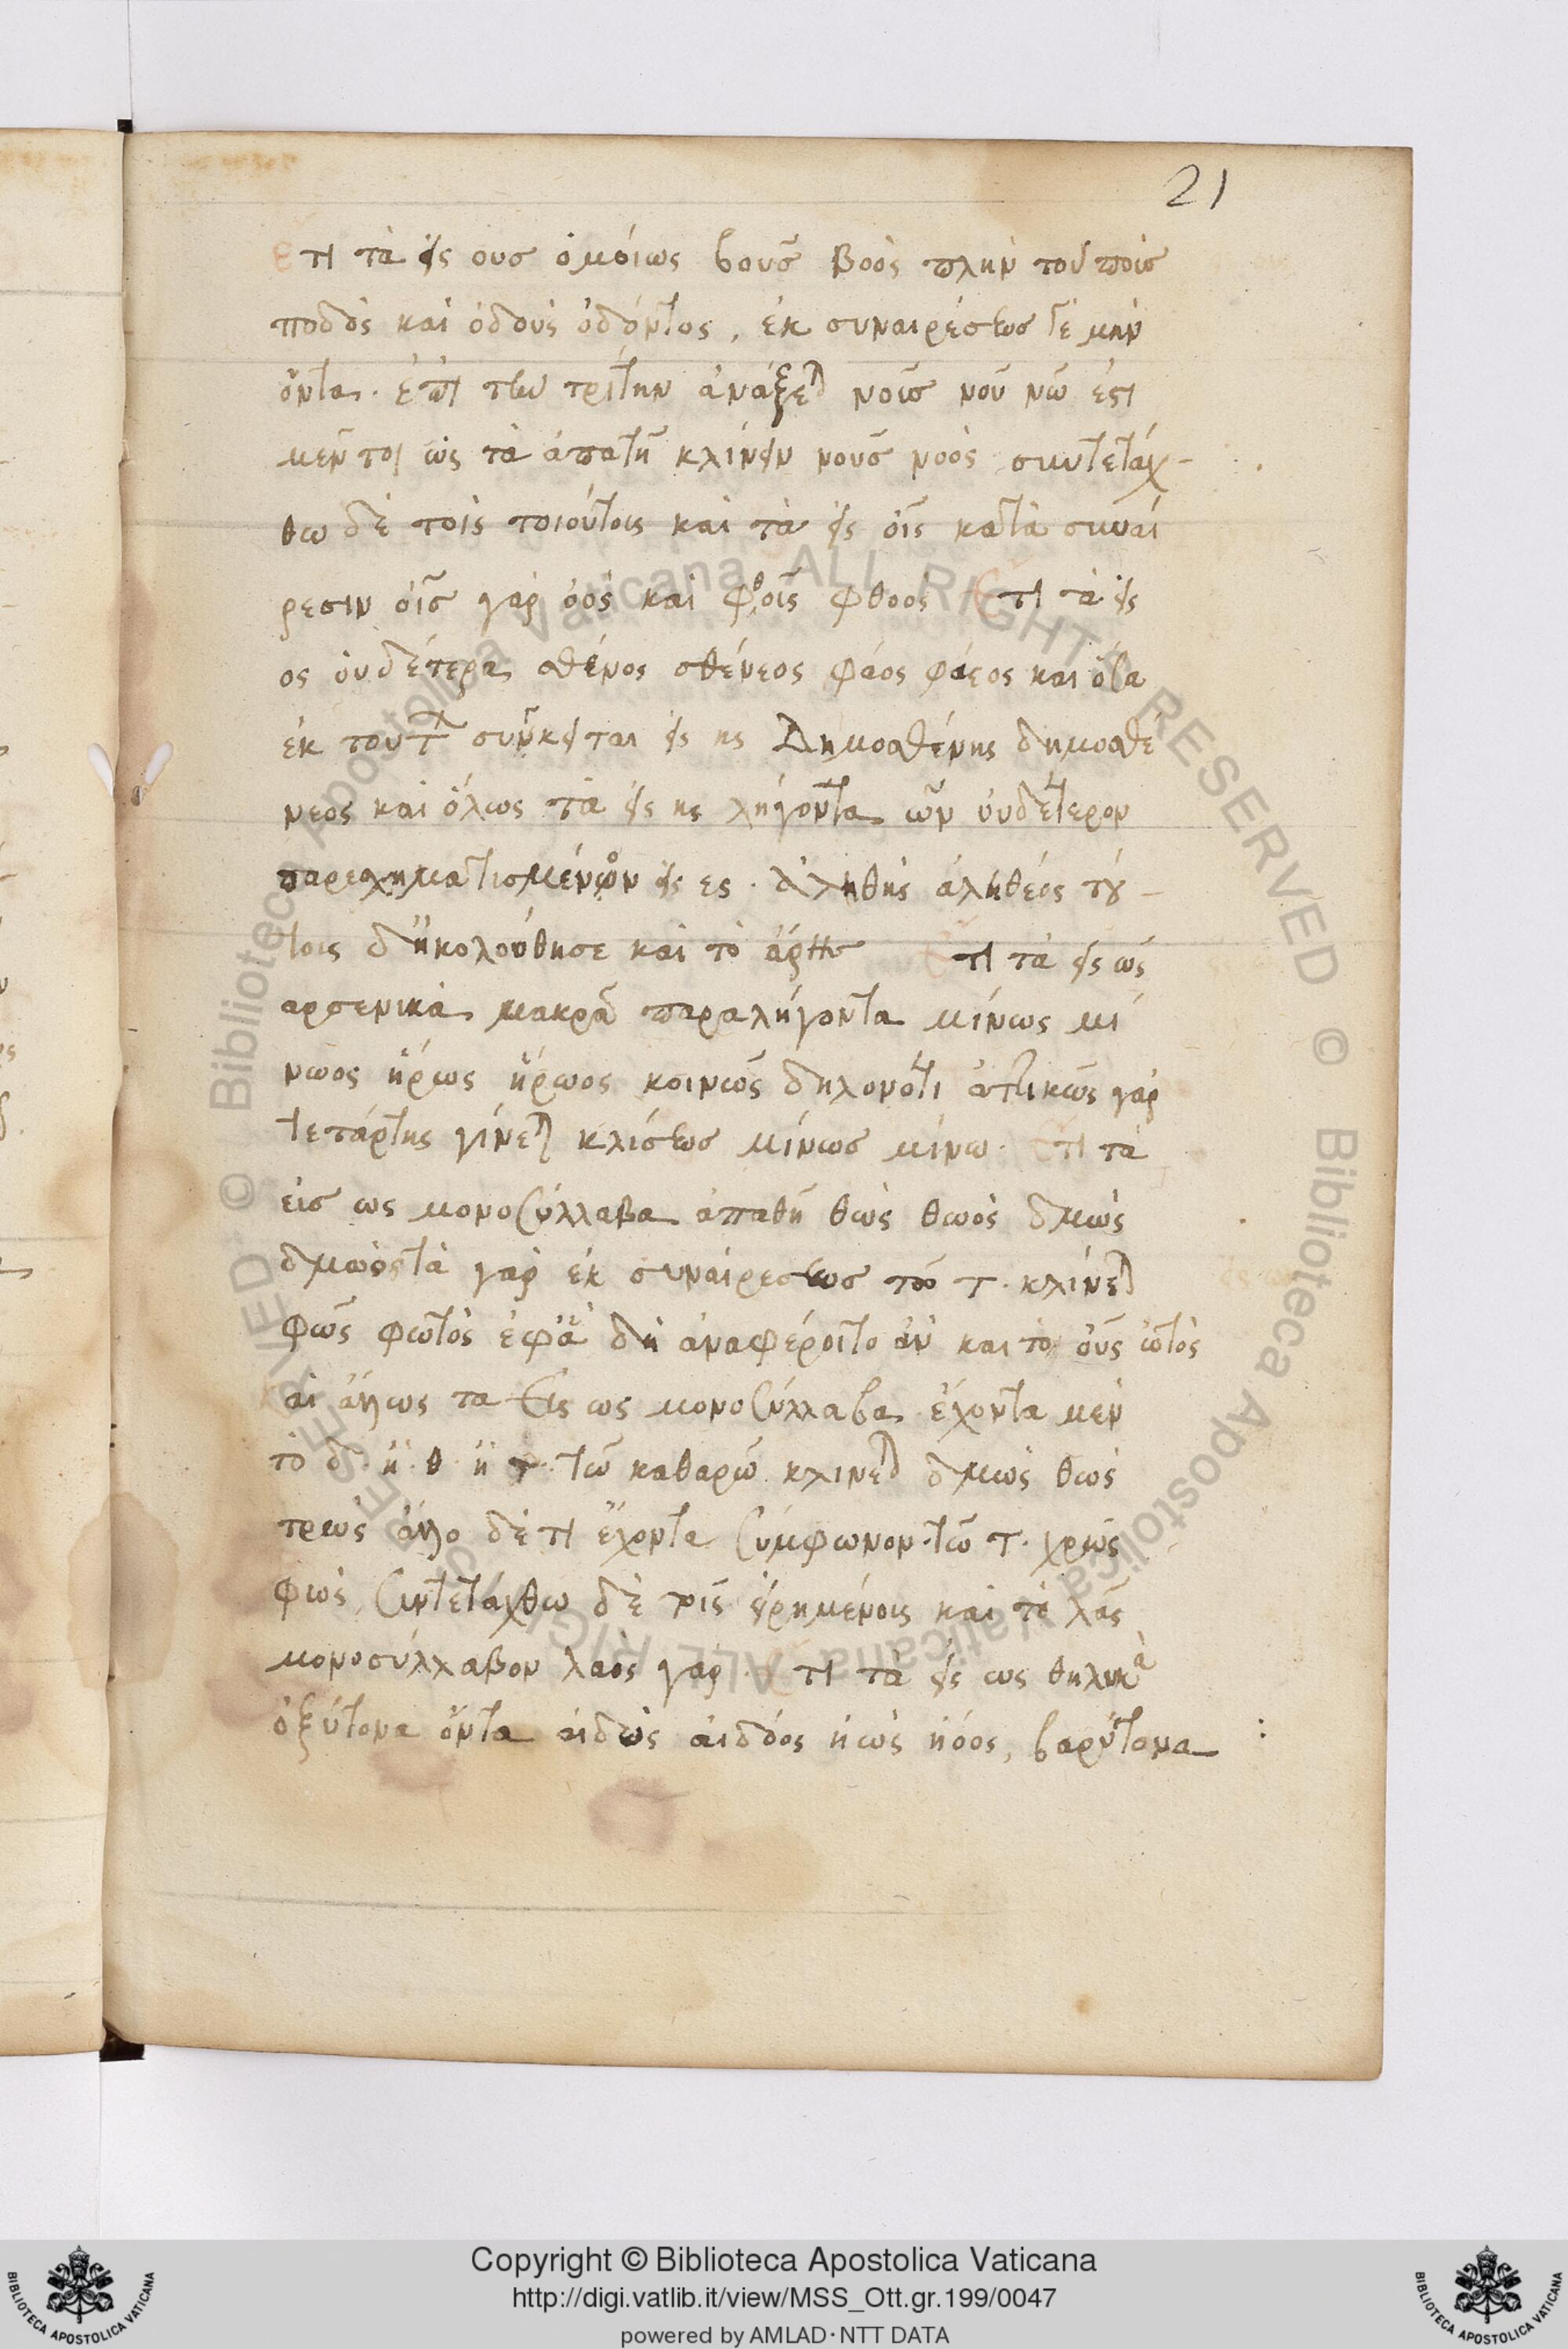 21
Ετι τὰ εἰς ους ὁμοίως βοῦς βοὸς πλὴν τοῦ ποὺς
ποδὸς καὶ ὀδοὺς ὀδόντος, ἐκ συναιρέσεως γε μὴν
ὄντα. ἐπὶ τὴν τρίτην ἀνάξεται νοῦς νοῦ νῶ ἔστι
μέν τοι ὡς τὰ ἀπαθῆ κλίνειν νοῦς νοός συντετάχ-
θω δὲ τοῖς τοιούτοις καὶ τὰ εἰς οῖς κατὰ συναί
ρεσιν οἶς γὰρ οὀς καὶ φθοῖς φθοός Ετι τὰ εἰς
ος οὐδέτερα σθένος σθένεος φάος φάεος καὶ ὅσα
ἐκ τούτων σύγκειται εἰς ης Δημοσθένης δημοσθέ
νεος καὶ ὅλως τὰ εἰς ης λήγοντα ὧν οὐδέτερον
παρεσχηματισμένον εἰς ες. ἀληθὴς ἀληθέος τού-
τοις δ' ἠκολούθησε καὶ τὸ ἄρης Ετι τὰ εἰς ως
αρσενικὰ μακρᾶ παραλήγοντα μίνως μί
νωος ἥρως ἥρωος κοινῶς δηλονότι ἀττικῶς γὰρ
τετάρτης γίνεται κλίσεως μίνως μίνω. Ετι τὰ
εἰς ως μονοσύλλαβα ἀπαθῆ θὼς θωὸς δμὼς
δμωὸς τὰ γὰρ ἐκ συναιρέσεως τοῦ τ. κλίνεται
φῶς φωτὸς ἐφ' ἃ δὴ ἀναφέροιτο ἂν καὶ τὸ οὖς ὠτὸς
Καὶ ἄλλως τα εἰς ως μονοσύλλαβα ἔχοντα μὲν
τὸ δ. ἢ θ ἢ τ. τῶ καθαρῶ κλίνεται δμὼς θὼς
τρὼς ἄλλο δὲ τι ἔχοντα σύμφωνον. τῶ τ. χρὼς
φώς, συντετάχθω δὲ τοῖς εἰρημένοις καὶ τὸ λᾶς
μονοσύλλαβον λαὸς γάρ. Ετι τὰ εἰς ως θηλυκὰ
ὀξύτονα ὄντα αἰδὼς αἰδόος ἠὼς ἠόος, βαρύτονα
Copyright © Biblioteca Apostolica Vaticana
http://digi.vatlib.it/view/MSS_Ott.gr.199/0047
powered by AMLAD·NTT DATA